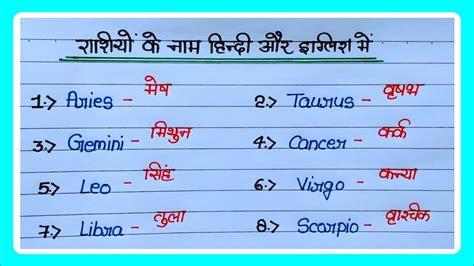 राशियों के नाम हिन्दी और इंग्लिश में
1.> Aries - मेष 2.> Taurus - वृषभ
3.> Gemini - मिथुन 4.> Cancer - कर्क
5.> Leo - सिंह 6.> Virgo - कन्या
7.> Libra - तुला 8.> Scorpio - वृश्चिक